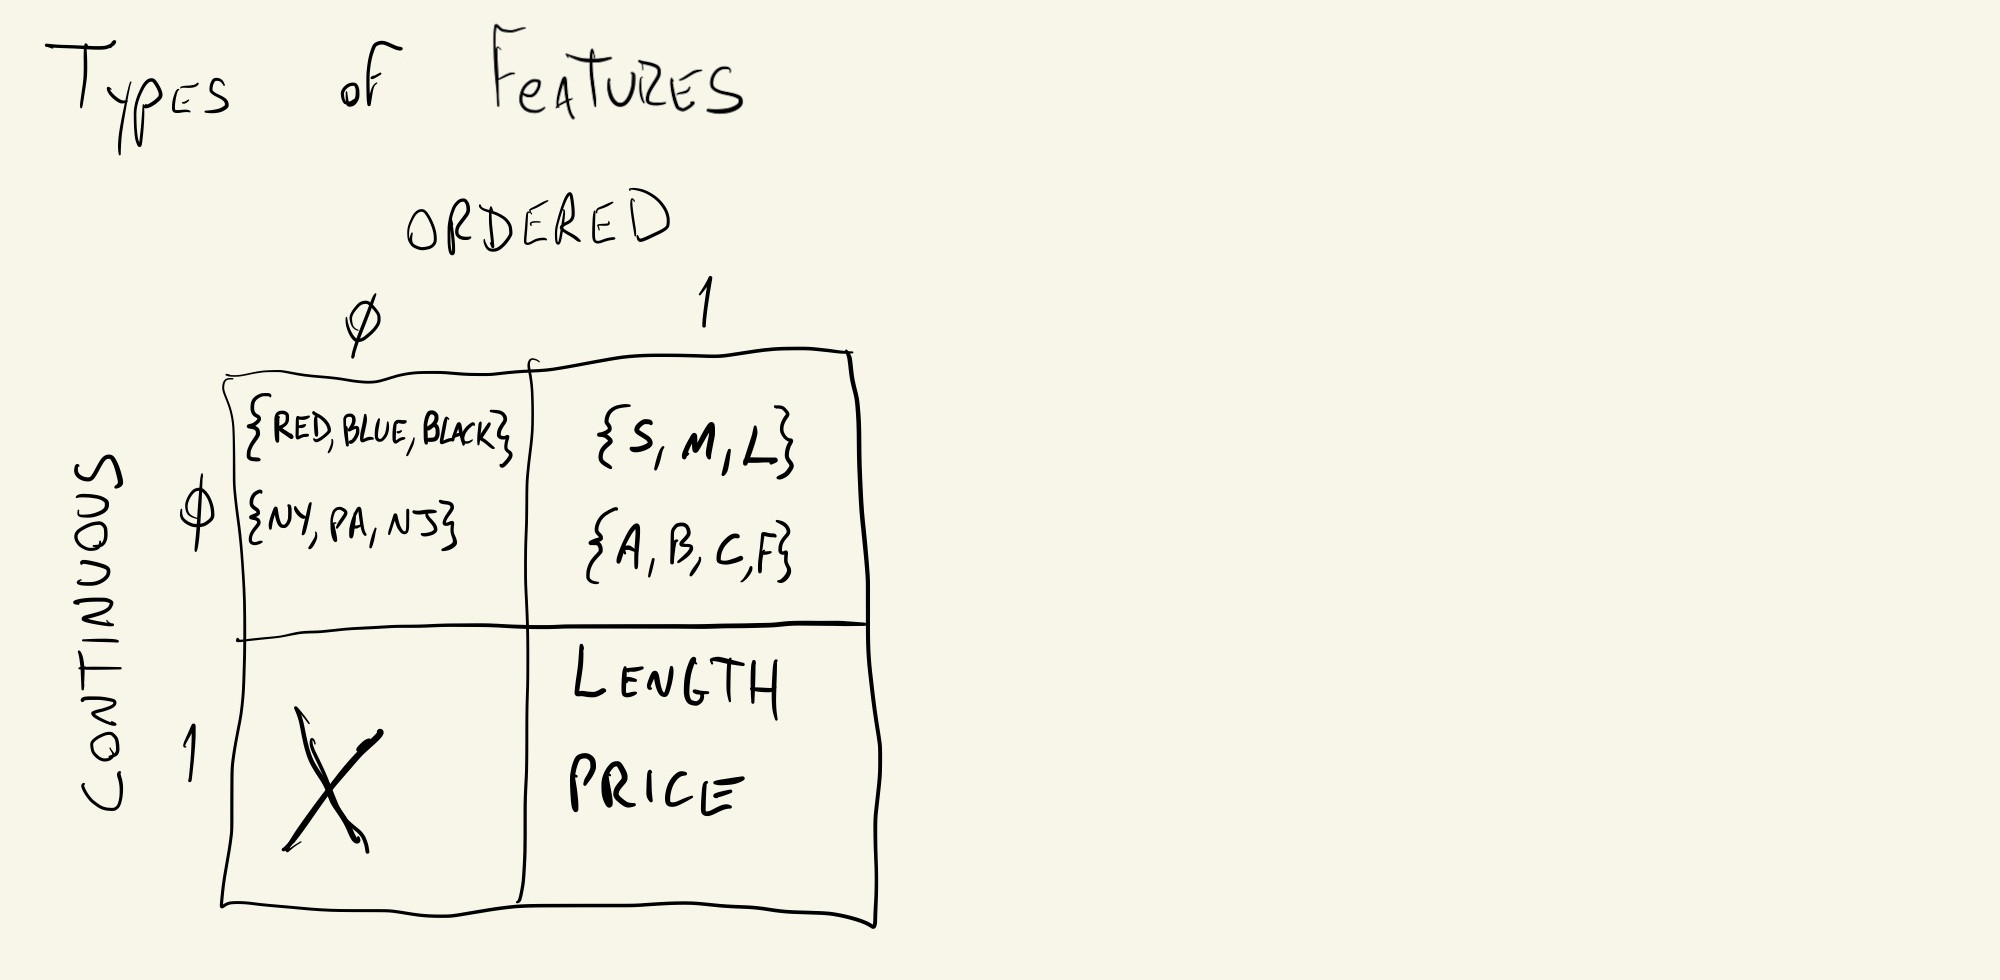 Types of Features
ORDERED
0 1
CONTINUOUS
0
{RED, BLUE, BLACK}
{NY, PA, NJ}
{S, M, L}
{A, B, C, F}
1
X
LENGTH
PRICE